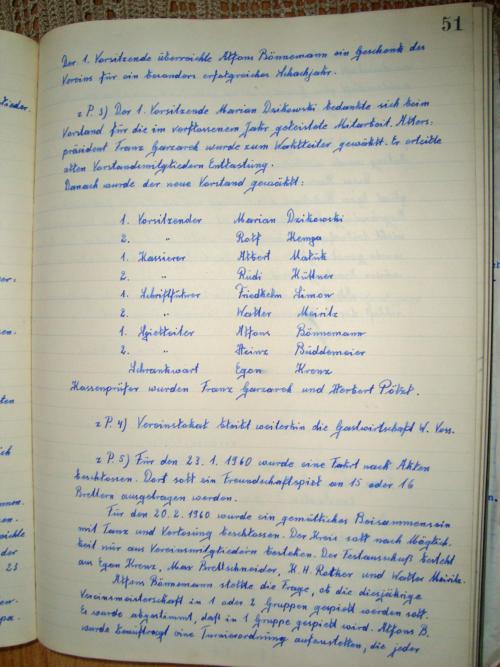 51
Der 1. Vorsitzende überreichte Alfons Bönnemann ein Geschenk des
Vereins für ein besonders erfolgreiches Schachjahr.
z P. 3) Der 1. Vorsitzende Marian Dzikowski bedankte sich beim
Vorstand für die im verflossenem Jahr geleistete Mitarbeit. Alters-
präsident Franz Garzarek wurde zum Wahlleiter gewählt. Er erteilte
allen Vorstandsmitgliedern Entlastung.
Danach wurde der neue Vorstand gewählt:
1. Vorsitzender Marian Dzikowski
2. " Rolf Hempa
1. Kassierer Albert Matuk
2. " Rudi Hüttner
1. Schriftführer Friedhelm Simon
2. " Walter Meiritz
1. Spielleiter Alfons Bönnemann
2. " Heinz Büddemeier
Schrankwart Egon Krenz
Kassenprüfer wurden Franz Garzarek und Herbert Pötzt.
z P. 4) Vereinslokal bleibt weiterhin die Gastwirtschaft W. Voss.
z P. 5) Für den 23. 1. 1960 wurde eine Fahrt nach Ahlen
beschlossen. Dort soll ein Freundschaftspiel an 15 oder 16
Brettern ausgetragen werden.
Für den 20. 2. 1960 wurde ein gemütliches Beisammensein
mit Tanz und Verlosung beschlossen. Der Kreis soll nach Möglich-
keit nur aus Vereinsmitgliedern bestehen. Der Festausschuß besteht
aus Egon Krenz, Max Brettschneider, K. H. Rotker und Walter Meiritz.
Alfons Bönnemann stellte die Frage, ob die diesjährige
Vereinsmeisterschaft in 1 oder 2 Gruppen gespielt werden soll.
Es wurde abgestimmt, daß in 1 Gruppe gespielt wird. Alfons B.
wurde beauftragt eine Turnierordnung aufzustellen, die jeder